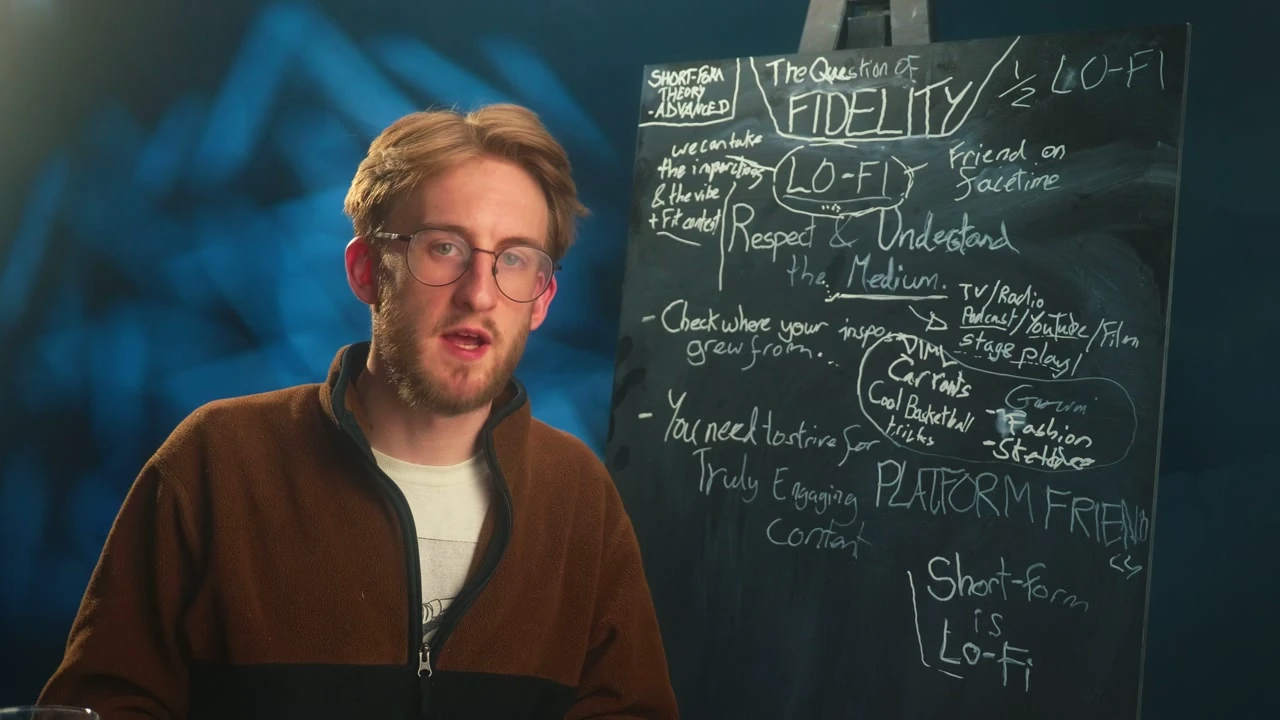 SHORT-FORM
THEORY
-ADVANCED
The Question of
FIDELITY
1/2 LO-FI
we can take
the
& the vibe
+ Fit content
LO-FI
Friend on
facetime
Respect & Understand
the Medium.
TV/Radio
Podcast/YouTube/Film
stage plays/
- Check where your inspo
grew from...
Car rants
Cool Basketball
tricks
- Fashion
- Sketches
- You need to strive for
Truly Engaging
Content
PLATFORM FRIEND
Short-form
is
Lo-Fi